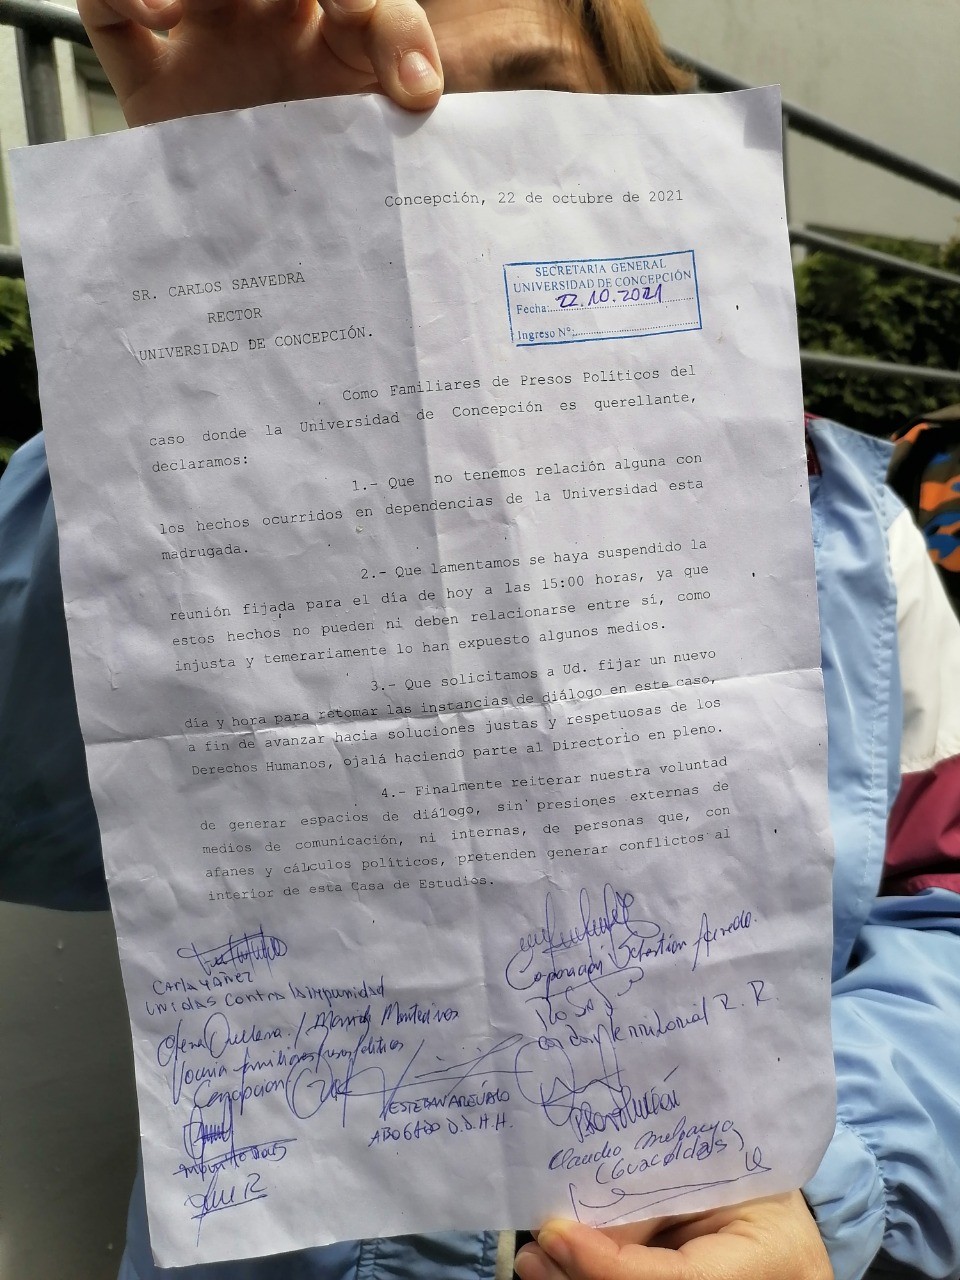 Concepción, 22 de octubre de 2021
SECRETARIA GENERAL
UNIVERSIDAD DE CONCEPCIÓN
Fecha: 22.10.2021
Ingreso N°:
SR. CARLOS SAAVEDRA
RECTOR
UNIVERSIDAD DE CONCEPCIÓN.
Como Familiares de Presos Políticos del
caso donde la Universidad de Concepción es querellante,
declaramos:
1.- Que no tenemos relación alguna con
los hechos ocurridos en dependencias de la Universidad esta
madrugada.
2.- Que lamentamos se haya suspendido la
reunión fijada para el día de hoy a las 15:00 horas, ya que
estos hechos no pueden ni deben relacionarse entre sí, como
injusta y temerariamente lo han expuesto algunos medios.
3.- Que solicitamos a Ud. fijar un nuevo
día y hora para retomar las instancias de diálogo en este caso,
a fin de avanzar hacia soluciones justas y respetuosas de los
Derechos Humanos, ojalá haciendo parte al Directorio en pleno.
4.- Finalmente reiterar nuestra voluntad
de generar espacios de diálogo, sin presiones externas de
medios de comunicación, ni internas, de personas que, con
afanes y cálculos políticos, pretenden generar conflictos al
interior de esta Casa de Estudios.
CARLA YAÑEZ
UNIDAS contra la impunidad
Vocería familiares presos políticos
Concepcion
ESTEBAN ARÉVALO
ABOGADO D.D.H.H.
Corporación Sebastián Acevedo.
R. R.
Claudio